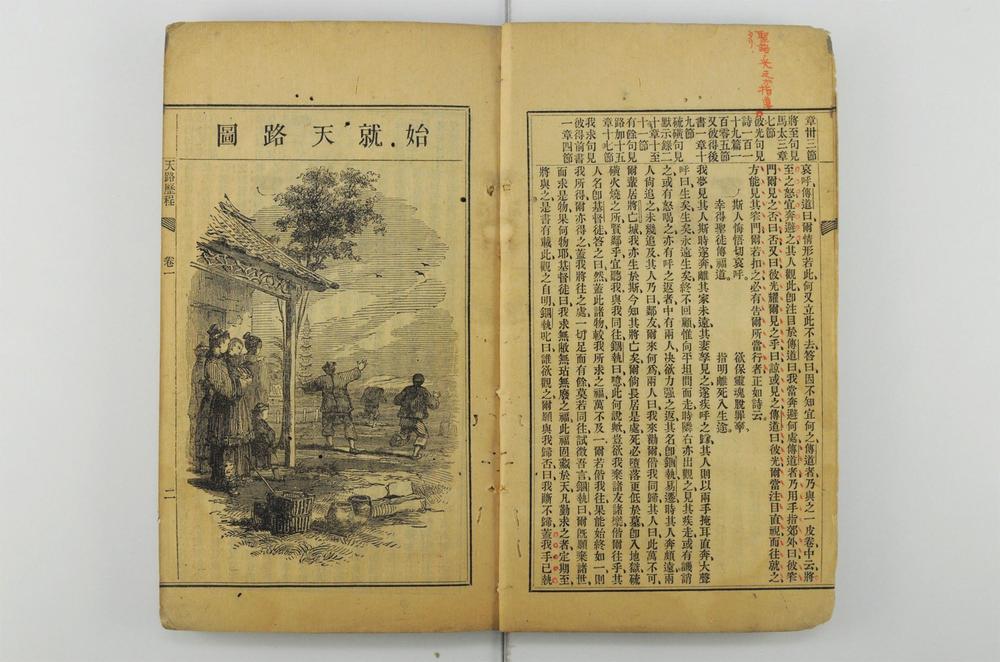 章卅三節
將至句見
馬太三章
七節
彼光句見
詩一百一
十九篇一
百零五節
又彼得後
書一章十
九節
硫磺句見
默示錄二
十章十至
十一節
有餘句見
路加十五
章十七節
我求句見
彼得前書
一章四節
哀呼、傳道曰、爾情形若此、何又立此不去、答曰、因不知宜何之、傳道者乃與之一皮卷、中云、將
至之怒、宜奔避之、其人觀此、卽注目於傳道曰、我當奔避何處、傳道者乃用手指郊外曰、彼窄
門爾見之否、曰、否、又曰、彼光耀爾見之乎、曰、諒或見之、傳道曰、彼光爾當注目直視而往就之、
方能見其窄門、爾若扣之、必有告爾所當行者、正如詩云、
斯人悔悟切哀呼。欲保靈魂脫罪辜。
幸得聖徒傳福道。指明離死入生途。
我夢見其人斯時遂奔離其家未遠、其妻孥見之、遂疾呼之歸、其人則以兩手掩耳直奔、大聲
呼曰、生矣、生矣、永遠生矣、終不回顧、惟向平坦間而走、時隣右亦出觀之、見其疾走、或有譏誚
之、或有怒喝之、亦有呼之返者、中有兩人、決欲力强之返、其名卽錮執、易遷、時其人奔頗遠、兩
人尙追之、未幾追及、其人乃曰、鄰友爾來何爲、兩人曰、我來勸爾偕我同歸、其人曰、此萬不可、
爾輩居將亡城、我亦生於斯、今知其將亡矣、爾倘長居是處、死必墮落更低於墓、卽入地獄硫
磺火燒之所、賢鄰乎、宜聽我與我同往、錮執曰、噫、此何說歟、豈欲我棄諸友、諸嬺偕爾往乎、其
人名卽基督徒、答之曰、然、蓋此諸物、較我所求之福、萬不及一、爾若偕我往、果能始終如一、則
我所得、爾亦得之、蓋我將往之處、一切足而有餘、莫若同往、試徵吾言、錮執曰、爾旣願棄諸世
而求是物、果何物耶、基督徒曰、我求無敝無玷無廢之福、此福固藏於天、凡勤求之者、定期至
將與之、是書有載、此觀之自明、錮執叱曰、誰欲觀之、爾願與我歸否、曰、我斷不歸、蓋我手已執
始就天路圖
天路歷程
卷一
二